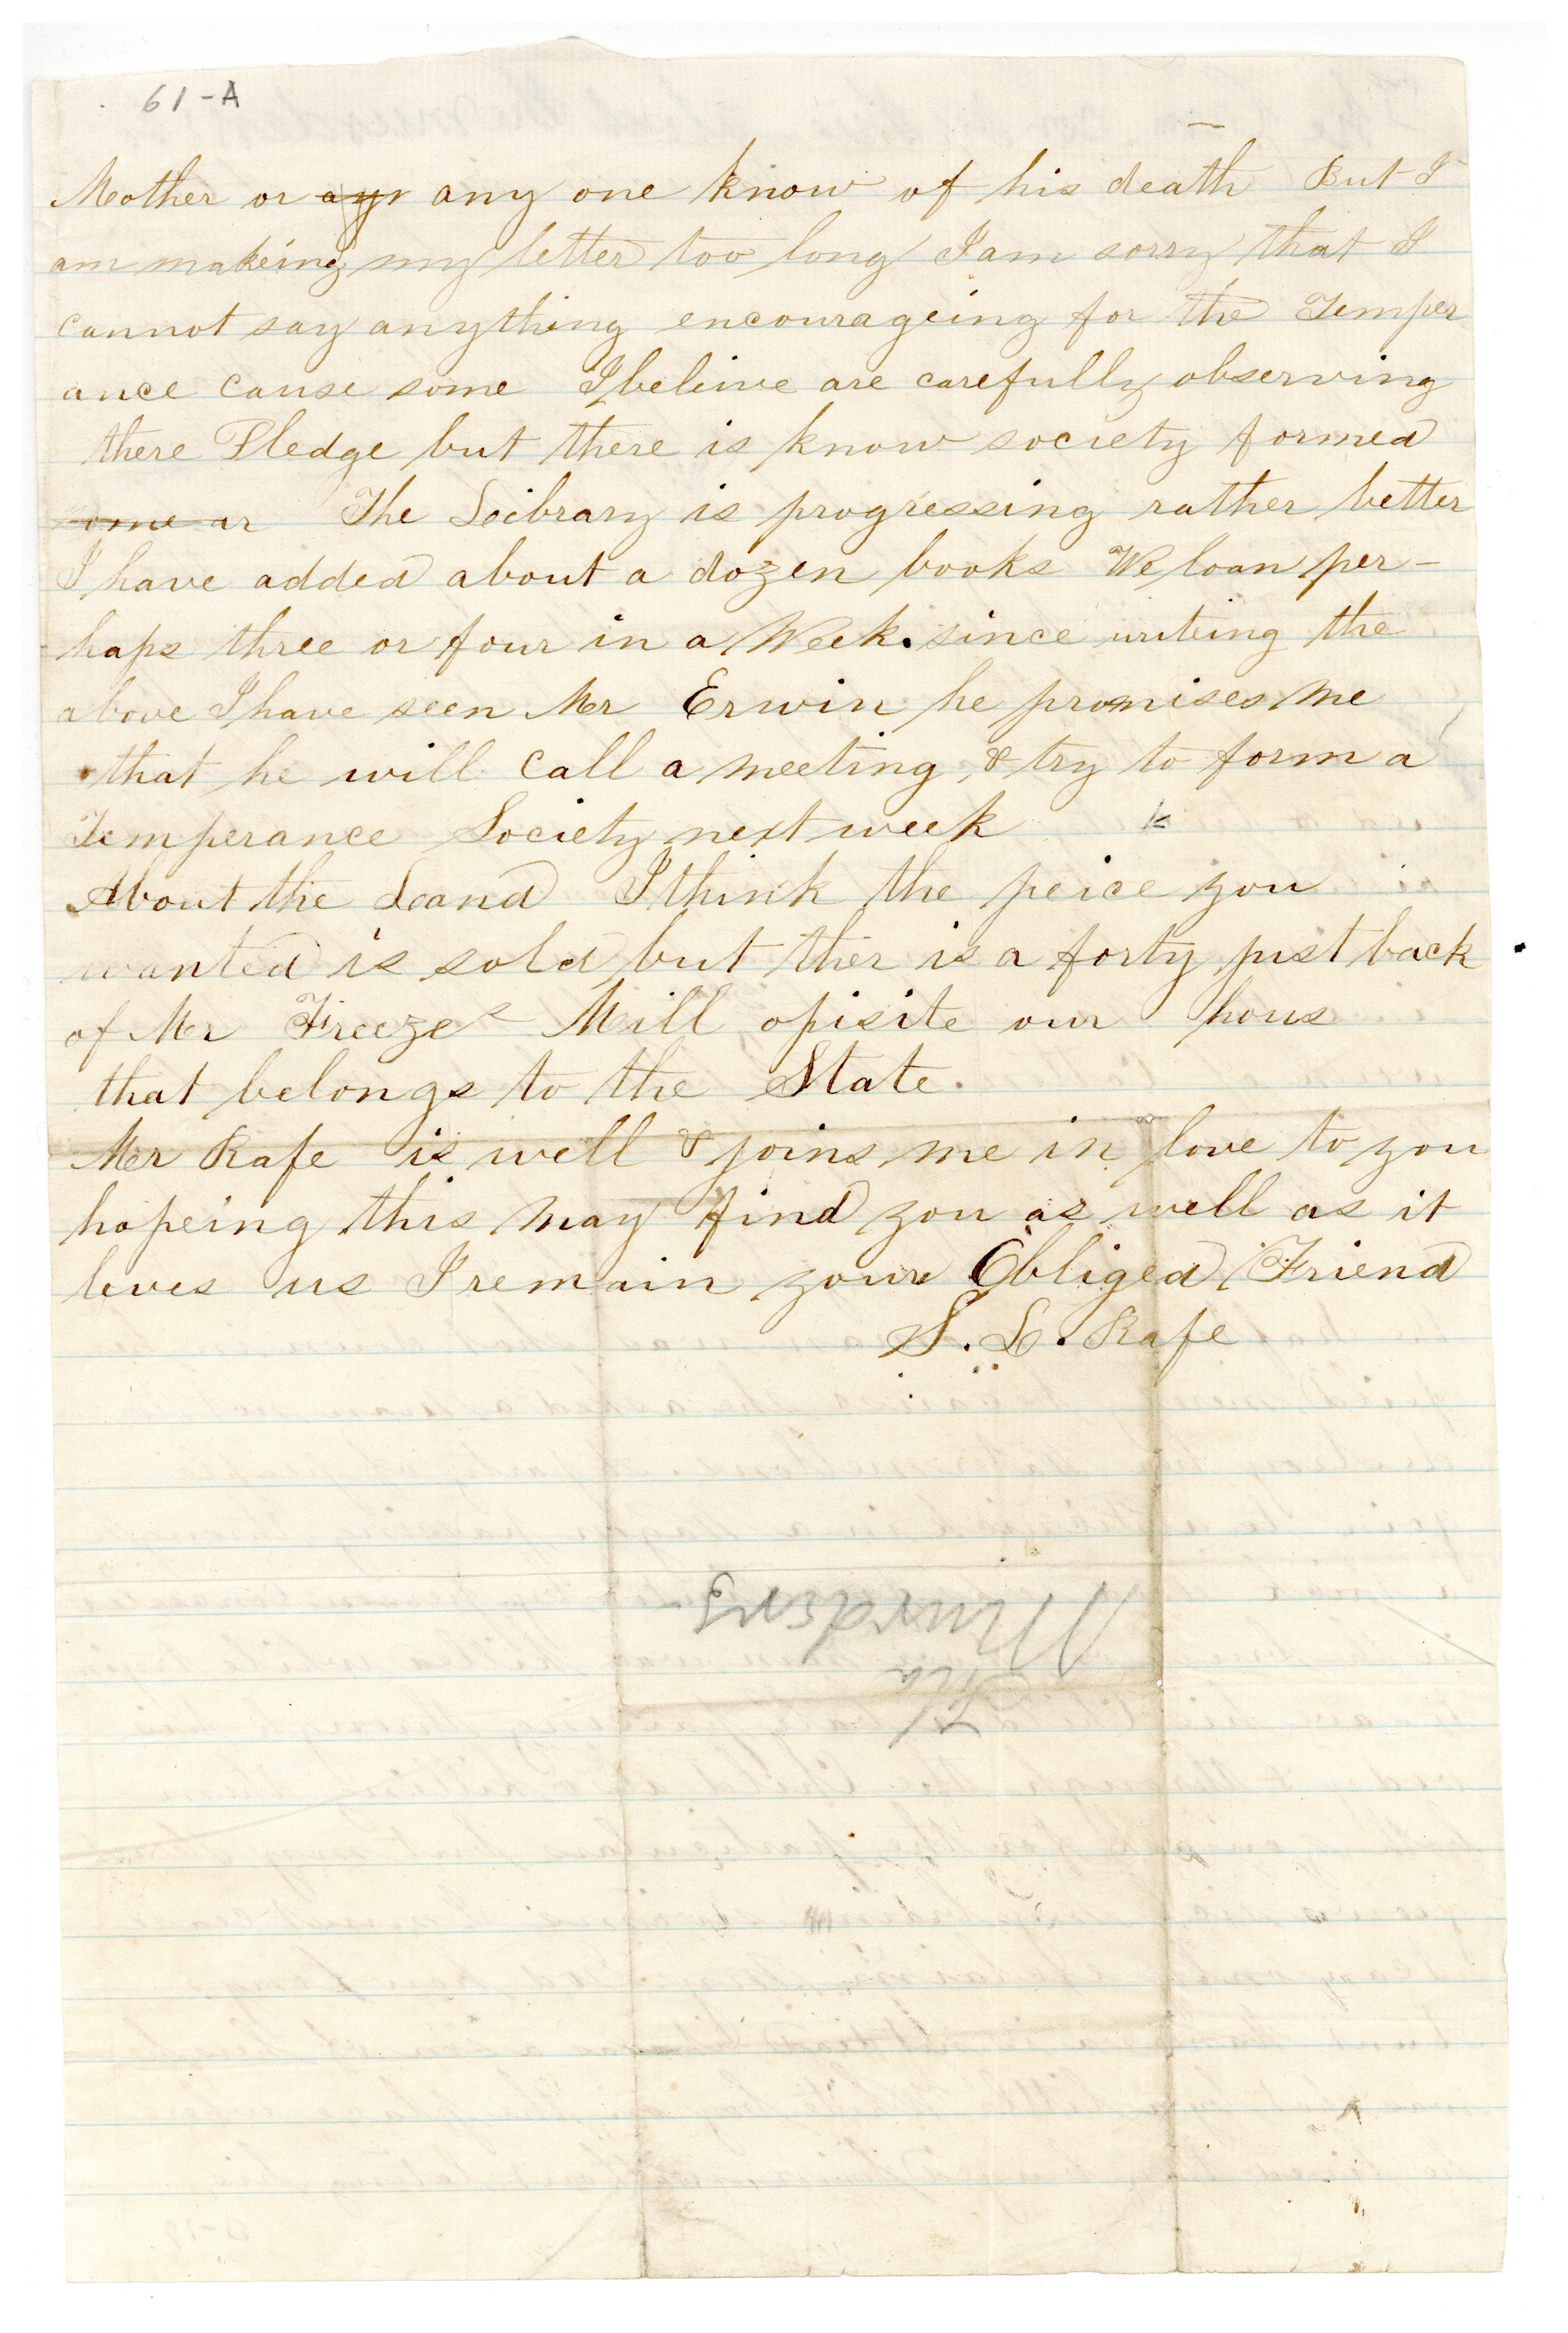 61-A
Mother or ayr any one know of his death But I
am makeing my letter too long I am sorry that I
cannot say anything encourageing for the Temper
ance cause some I beleive are carefully observing
there Pledge but there is know society formed
some ar The Library is progressing rather better
I have added about a dozen books We loan per-
haps three or four in a Week. since writeing the
above I have seen Mr Erwin he promises me
that he will call a meeting & try to form a
Temperance Society next week
About the Land I think the peice you
wanted is sold but ther is a forty just back
of Mr Freeze's Mill opisite our hous
that belongs to the State.
Mr Rafe is well & joins me in love to you
hopeing this may find you as well as it
leves us I remain your Obliged Friend
S. L. Rafe
Fla
Murders